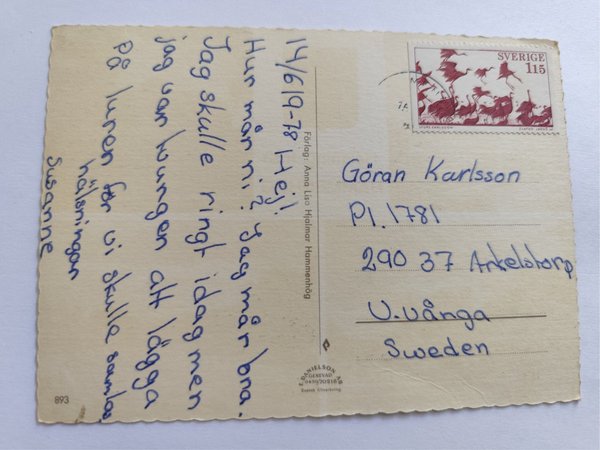 14/6 19-78 Hej!
Hur mår ni? Jag mår bra.
Jag skulle ringt idag men
jag var tvungen att lägga
På luren för vi skulle samlas
hälsningar
Susanne
Förlag: Anna Lisa Hjalmar Hammenhög
SVERIGE
115
Göran Karlsson
Pl. 1781
290 37 Arkelstorp
V. Vånga
Sweden
DANIELSON
893